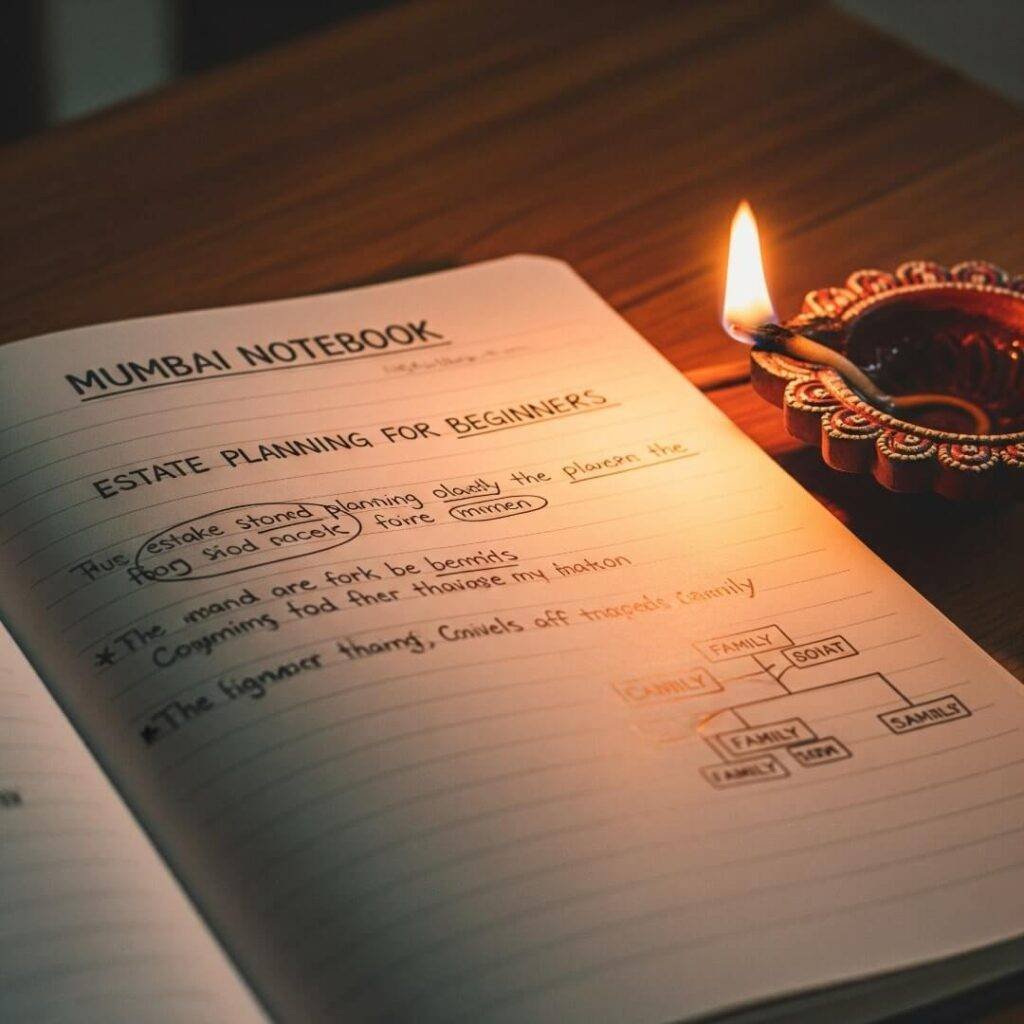 MUMBAI NOTEBOOK
ESTATE PLANNING FOR BEGINNERS
Thus estake stoned planning olactly the plavern the
fbog siod pacek foire mnmen
*The mand are fork be bemids
Cogmimis tod fher thaviase my matkon
*The fignmacr thamg, Conivels off trapeds Cannily
FAMILY
SOIAT
CANNILY
FAMILY
SAMIILY
FAMILY